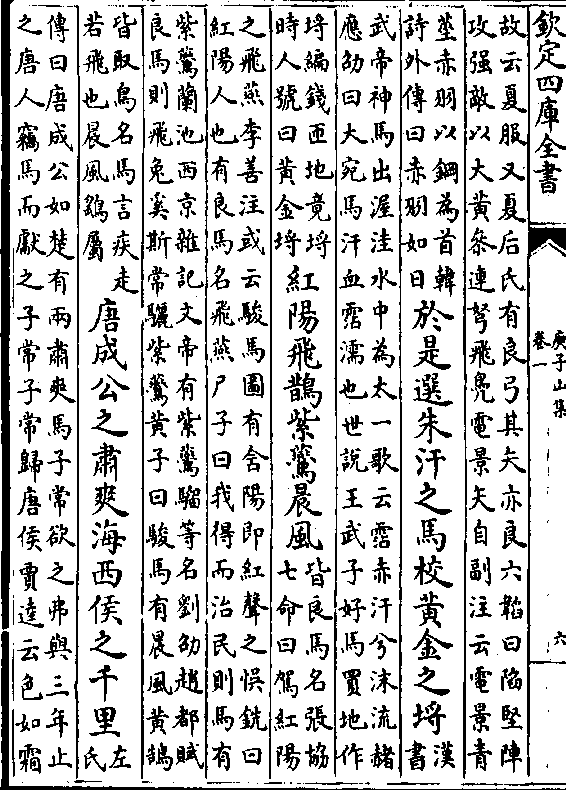 欽定四庫全書
庾子山集
卷一
六
故云夏服又夏后氏有良弓其矢亦良六韜曰陷堅陣
攻强敵以大黄叅連弩飛鳬電景矢自副注云電景青
莖赤羽以鋼為首韓
詩外傳曰赤羽如日
於是選朱汗之馬校黄金之埒
漢
書
武帝神馬出渥洼水中為太一歌云霑赤汗兮沫流赭
應劭曰大宛馬汗血霑濡也世説王武子好馬買地作
埒編錢匝地竟埒
時人號曰黄金埒
紅陽飛鵲紫鷰晨風
皆良馬名張協
七命曰駕紅陽
之飛燕李善注或云駿馬圖有含陽即紅聲之悮銑曰
紅陽人也有良馬名飛燕尸子曰我得而治民則馬有
紫鷰蘭池西京雜記文帝有紫鷰騮等名劉劭趙都賦
良馬則飛兔奚斯常驪紫鷰黄子曰駿馬有晨風黄鵠
皆取鳥名馬言疾走
若飛也晨風鸇屬
唐成公之肅爽海西侯之千里
左
氏
傳曰唐成公如楚有兩肅爽馬子常欲之弗與三年止
之唐人竊馬而獻之子常子常歸唐侯賈逵云色如霜